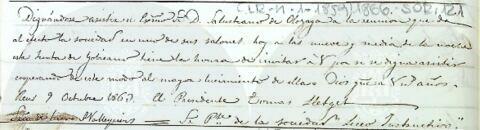 (CLR-N-1-1859/1866. SOR, 121
Dignándose asistir el Exmo. Sr. D. Salustiano de Olózaga a la reunion que da
al efecto la sociedad en uno de sus salones, hoy a las nueve y media de la noche
esta Junta de Gobierno tiene la honra de invitar a V. por si se digna asistir
cooperando de este modo al mayor lucimiento de ella = Dios gue. a V. ms. años.
Reus 9 Octubre 1863. El Presidente Tomas Lletget
= Sr. Pte. de la sociedad Liceo Instructivo"